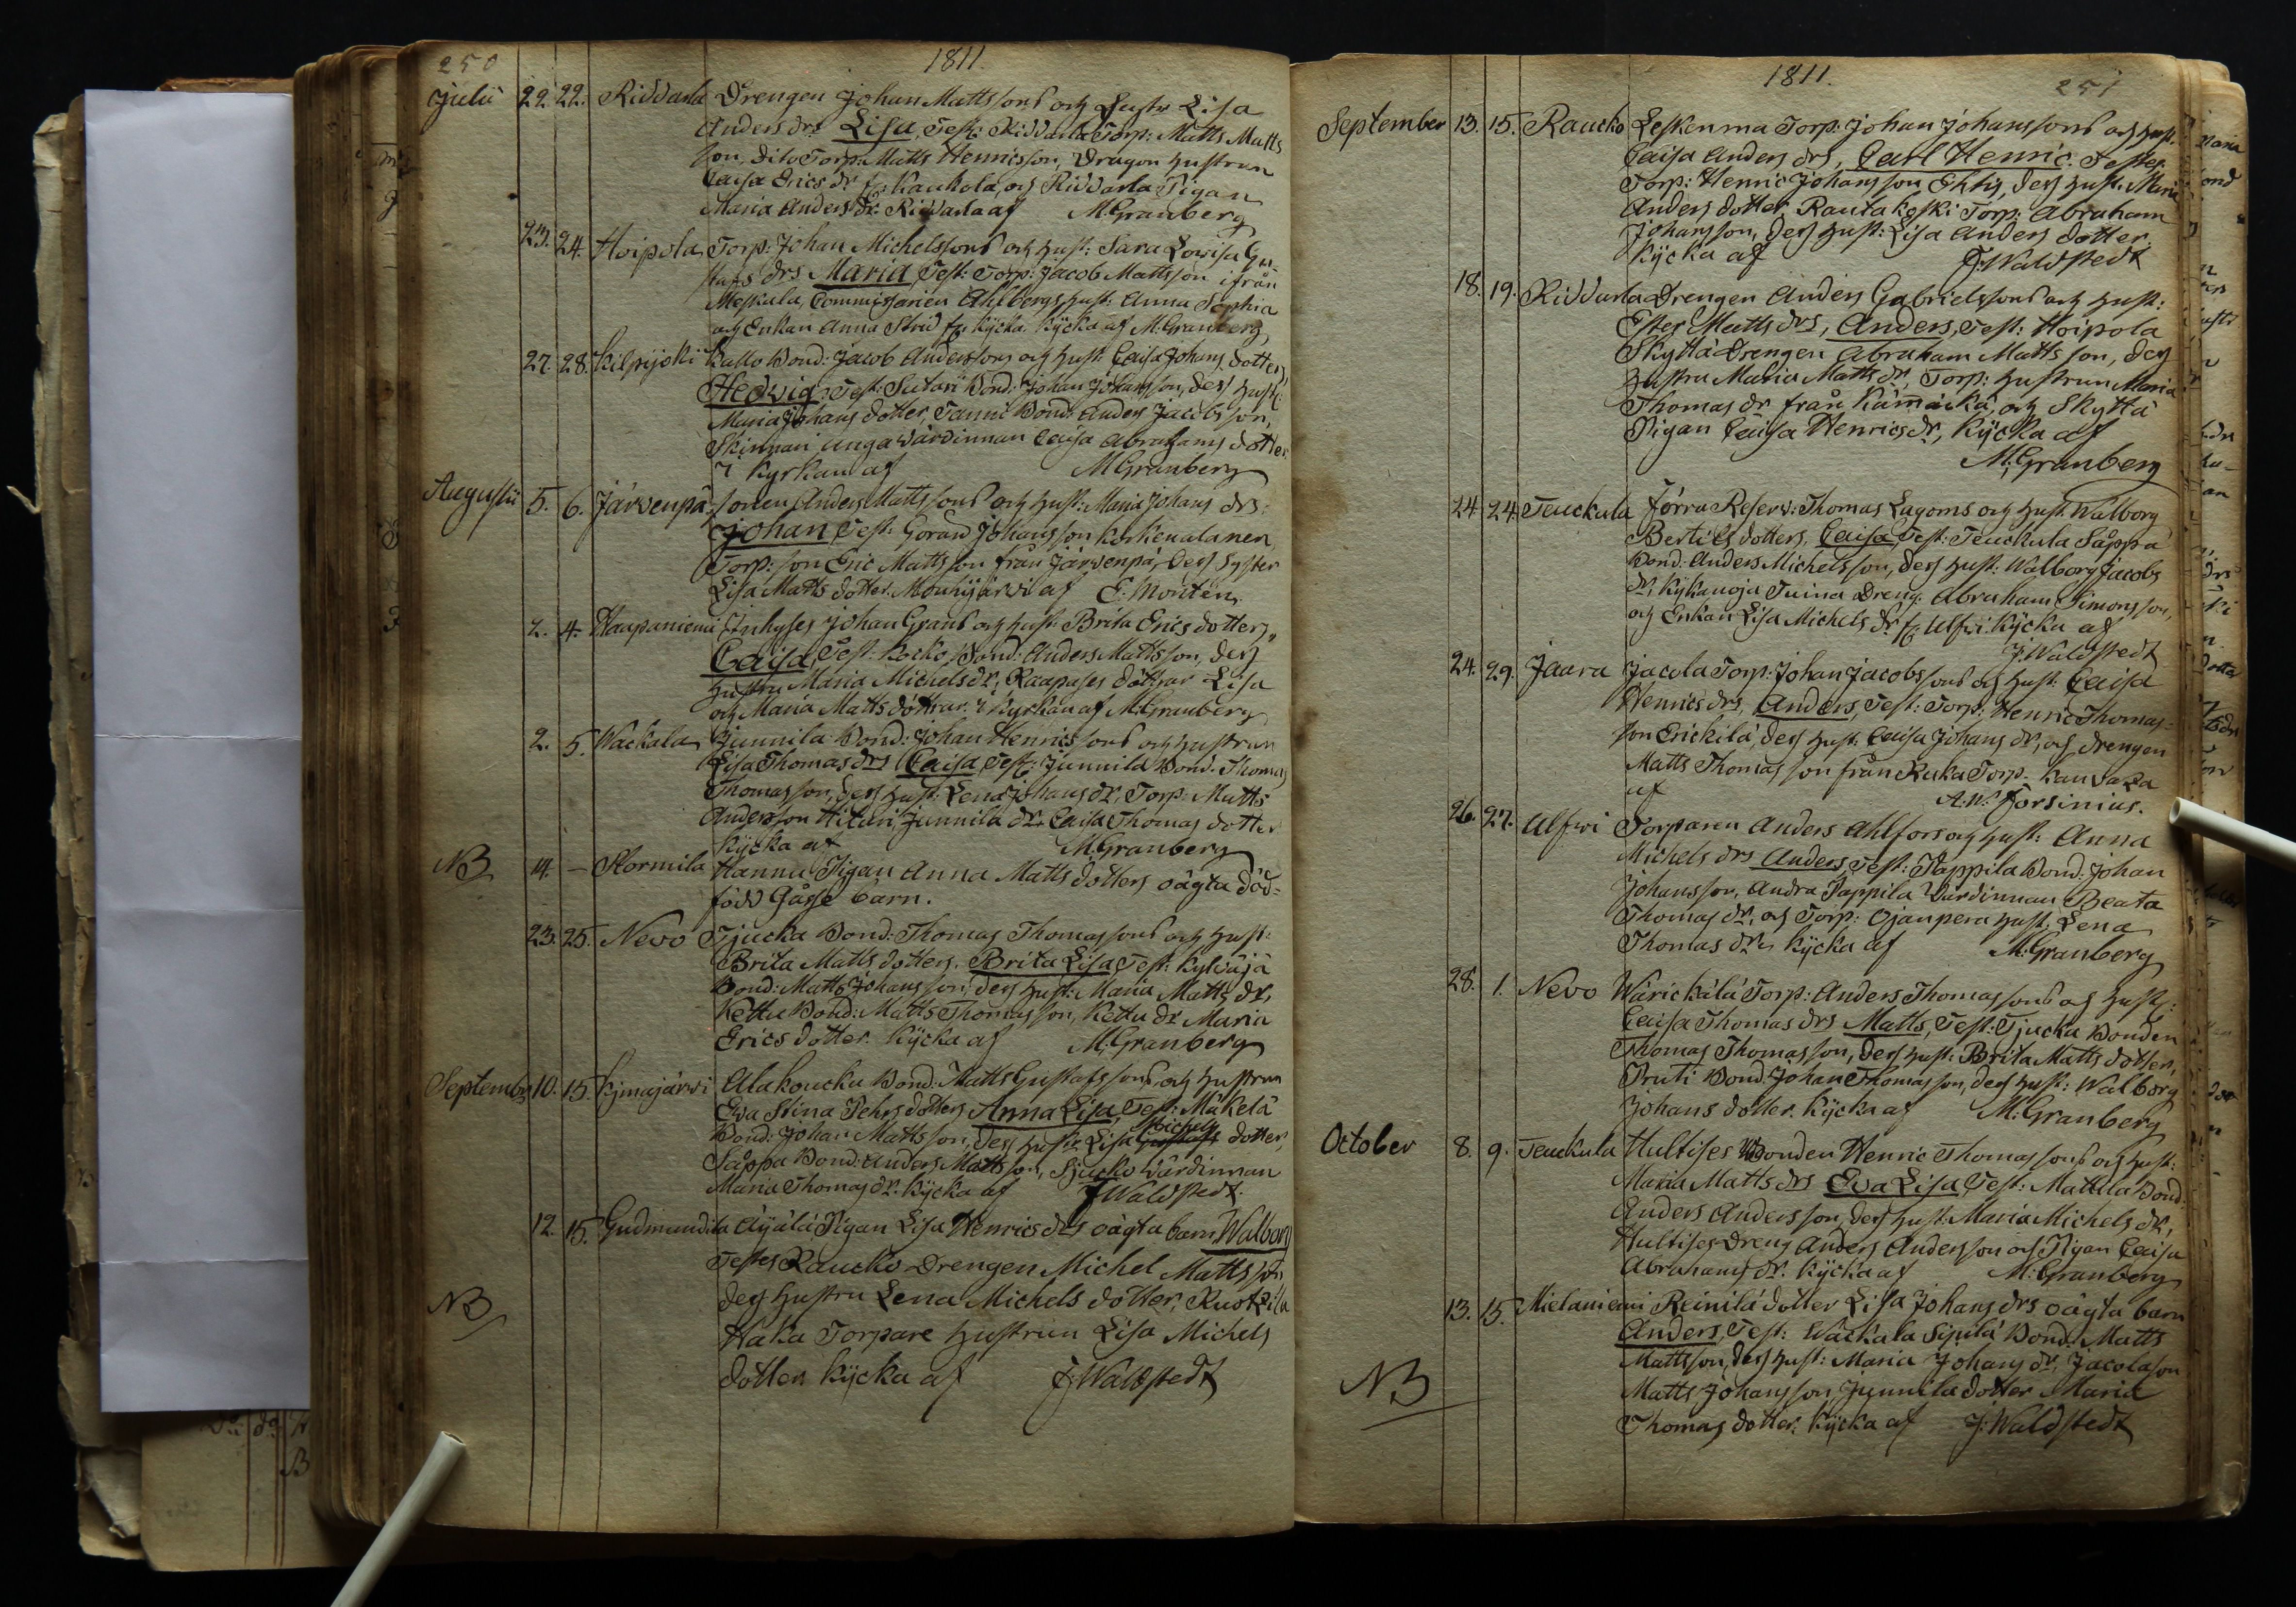 250
1811.
Julii 22. 22. Riddarla Drengen Johan Mattssons och Hustr Lisa
Anders drs Lisa, Test: Riddarla Torp: Matts Matts
son, dito Torp: Matts Henricsson, Dragon hustrun
Caisa Erics dr fr. Kaukola, och Riddarla Pigan
Maria Anders dr: Riddarla af M. Granberg
23. 24. Hoipola Torp: Johan Michelssons och hust: Sara Lovisa Gu-
stafs drs Maria, Test: Torp: Jacob Mattsson ifrån
Meskala, Commissarien Ahlbergs hust: Anna Sophia
och Enkan Anna Strid fr. Kÿcka. Kÿcka af M: Granberg
27. 28. Kilpijoki Kallo Bond: Jacob Anderssons och hust: Caisa Johans dotters
Hedvig, Test: Sutari Bond: Johan Johansson, dess hust:
Maria Johans dotter, Tanni Bond: Anders Jacobsson,
Skinnari unga wärdinnan Caisa Abrahams dotter.
i Kyrkan af M. Granberg
Augustii 5. 6. Järvenpä sonen Anders Mattssons och hust: Maria Johans drs:
Johan, Test: Göran Johansson Korkenalanen,
Torp: son Eric Mattsson från Järvenpä, dess syster
Lisa Matts dotter. Mouhijärvi af E. Montén.
2. 4. Haapaniemi Inhyses Johan Grans och hust: Brita Erics dotters,
Caisa, Test: Kocko Bond: Anders Mattsson, dess
hustru Maria Michels dr, Raapases döttrar Lisa
och Maria Matts döttrar. i Kyrkan af M. Granberg
2. 5. Wackala Junnila Bond: Johan Henricssons och hustrun
Lisa Thomas drs Caisa, Test: Junnila Bond. Thomas
Thomasson, dess hust: Lena Johans dr, Torp: Matts
Andersson Hituri, Junnila dr Caisa Thomas dotter
Kÿcka af M. Granberg
NB 14. – Stormila Hannu Pigan Anna Matts dotters oägta död-
född Gåsse barn.
23. 25. Nevo Tjucka Bond: Thomas Thomassons och hust:
Brita Matts dotters. Brita Lisa, Test: Kylväjä
Bond: Matts Johansson, dess hust: Maria Matts dr,
Kettu Bond: Matts Thomasson, Kettu dr Maria
Erics dotter. Kÿcka af M. Granberg
Septembr 10. 15. Kjmajärvi Alakoucku Bond: Matts Gustafssons och hustrun
Eva Stina Pehrs dotters Anna Lisa, Test: Mäkelä
Bond: Johan Mattsson, dess hustru Lisa Michels dotter,
Såppa Bond: Anders Mattsson, Sjucko Wärdinnan
Maria Thomas dr. Kÿcka af J Waldstedt.
12. 15. Gudmundila Äÿälä Pigan Lisa Henrics drs oägta barn Walborg
Testes Raucko Drengen Michel Mattsson,
dess hustru Lena Michels dotter, Ruotzila
NB
Haka Torpare hustrun Lisa Michels
dotter. Kÿcka af J: Waldstedt
1811.
251
September 13. 15. Raucko Leskenma Torp: Johan Johanssons och hust.
Caisa Anders drs, Carl Henric. Testes.
Torp: Henric Johansson Ehtis, dess hust: Maria
Anders dotter, Rautakoski Torp: Abraham
Johansson, dess hust: Lisa Anders dotter.
Kÿcka af J: Waldstedt
18. 19. Riddarla Drengen Anders Gabrielssons och hust:
Ester Matts drs, Anders, Test: Hoipola
Skyttä Drengen Abraham Mattsson, dess
hustru Maria Matts dr, Torp: hustrun Maria
Thomas dr från Kämäckä, och Skyttä
Pigan Caisa Henrics dr, Kÿcka af
M. Granberg
24. 24. Teuckula förra Reserv: Thomas Lagoms och hust: Walborg
Bertils dotters, Caisa, Test: Teuckula Såppa
Bond: Anders Michelsson, dess hust: Walborg Jacobs
dr, Kykanoja Tuina Dreng. Abraham Simonsson,
och Enkan Lisa Michels dr fr. Ulfvi. Kÿcka af
J. Waldstedt
24. 29. Jaara Jacola Torp: Johan Jacobssons och hust: Caisa
Henrics drs, Anders, Test: Torp: Henric Thomas-
son Erickilä, dess hust: Caisa Johans dr, och drengen
Matts Thomasson från Ruka Torp. Kauvaza
af A. W. Forsinius.
26. 27. Ulfvi Torparen Anders Ahlfors och hust: Anna
Michels drs Anders, Test: Pappila Bond: Johan
Johansson, Andra Pappila Wärdinnan Beata
Thomas dr, och Torp: Ojanpera hust: Lena
Thomas dr. Kÿcka af M: Granberg
28. 1. Nevo Wärickälä Torp: Anders Thomassons och hust:
Caisa Thomas drs Matts, Test: Tjucka Bonden
Thomas Thomasson, dess hust: Brita Matts dotter,
Pruti Bond: Johan Thomasson, dess hust: Walborg
Johans dotter. Kÿcka af M: Granberg
October 8. 9. Teuckula Hultises Bonden Henric Thomassons och hust:
Maria Matts drs Eva Lisa, Test: Mattila Bond:
Anders Andersson, dess hust: Maria Michels dr,
Hultises Dreng Anders Andersson och Pigan Caisa
Abrahams dr. Kÿcka af M: Granberg
13. 15. Mielaniemi Reinilä dotter Lisa Johans drs oägta barn
Anders, Test: Wackala Sipilä Bond: Matts
Mattsson, dess hust: Maria Johans dr, Jacola son
NB
Matts Johansson, Junnila dotter Maria
Thomas dotter. Kÿcka af J: Waldstedt